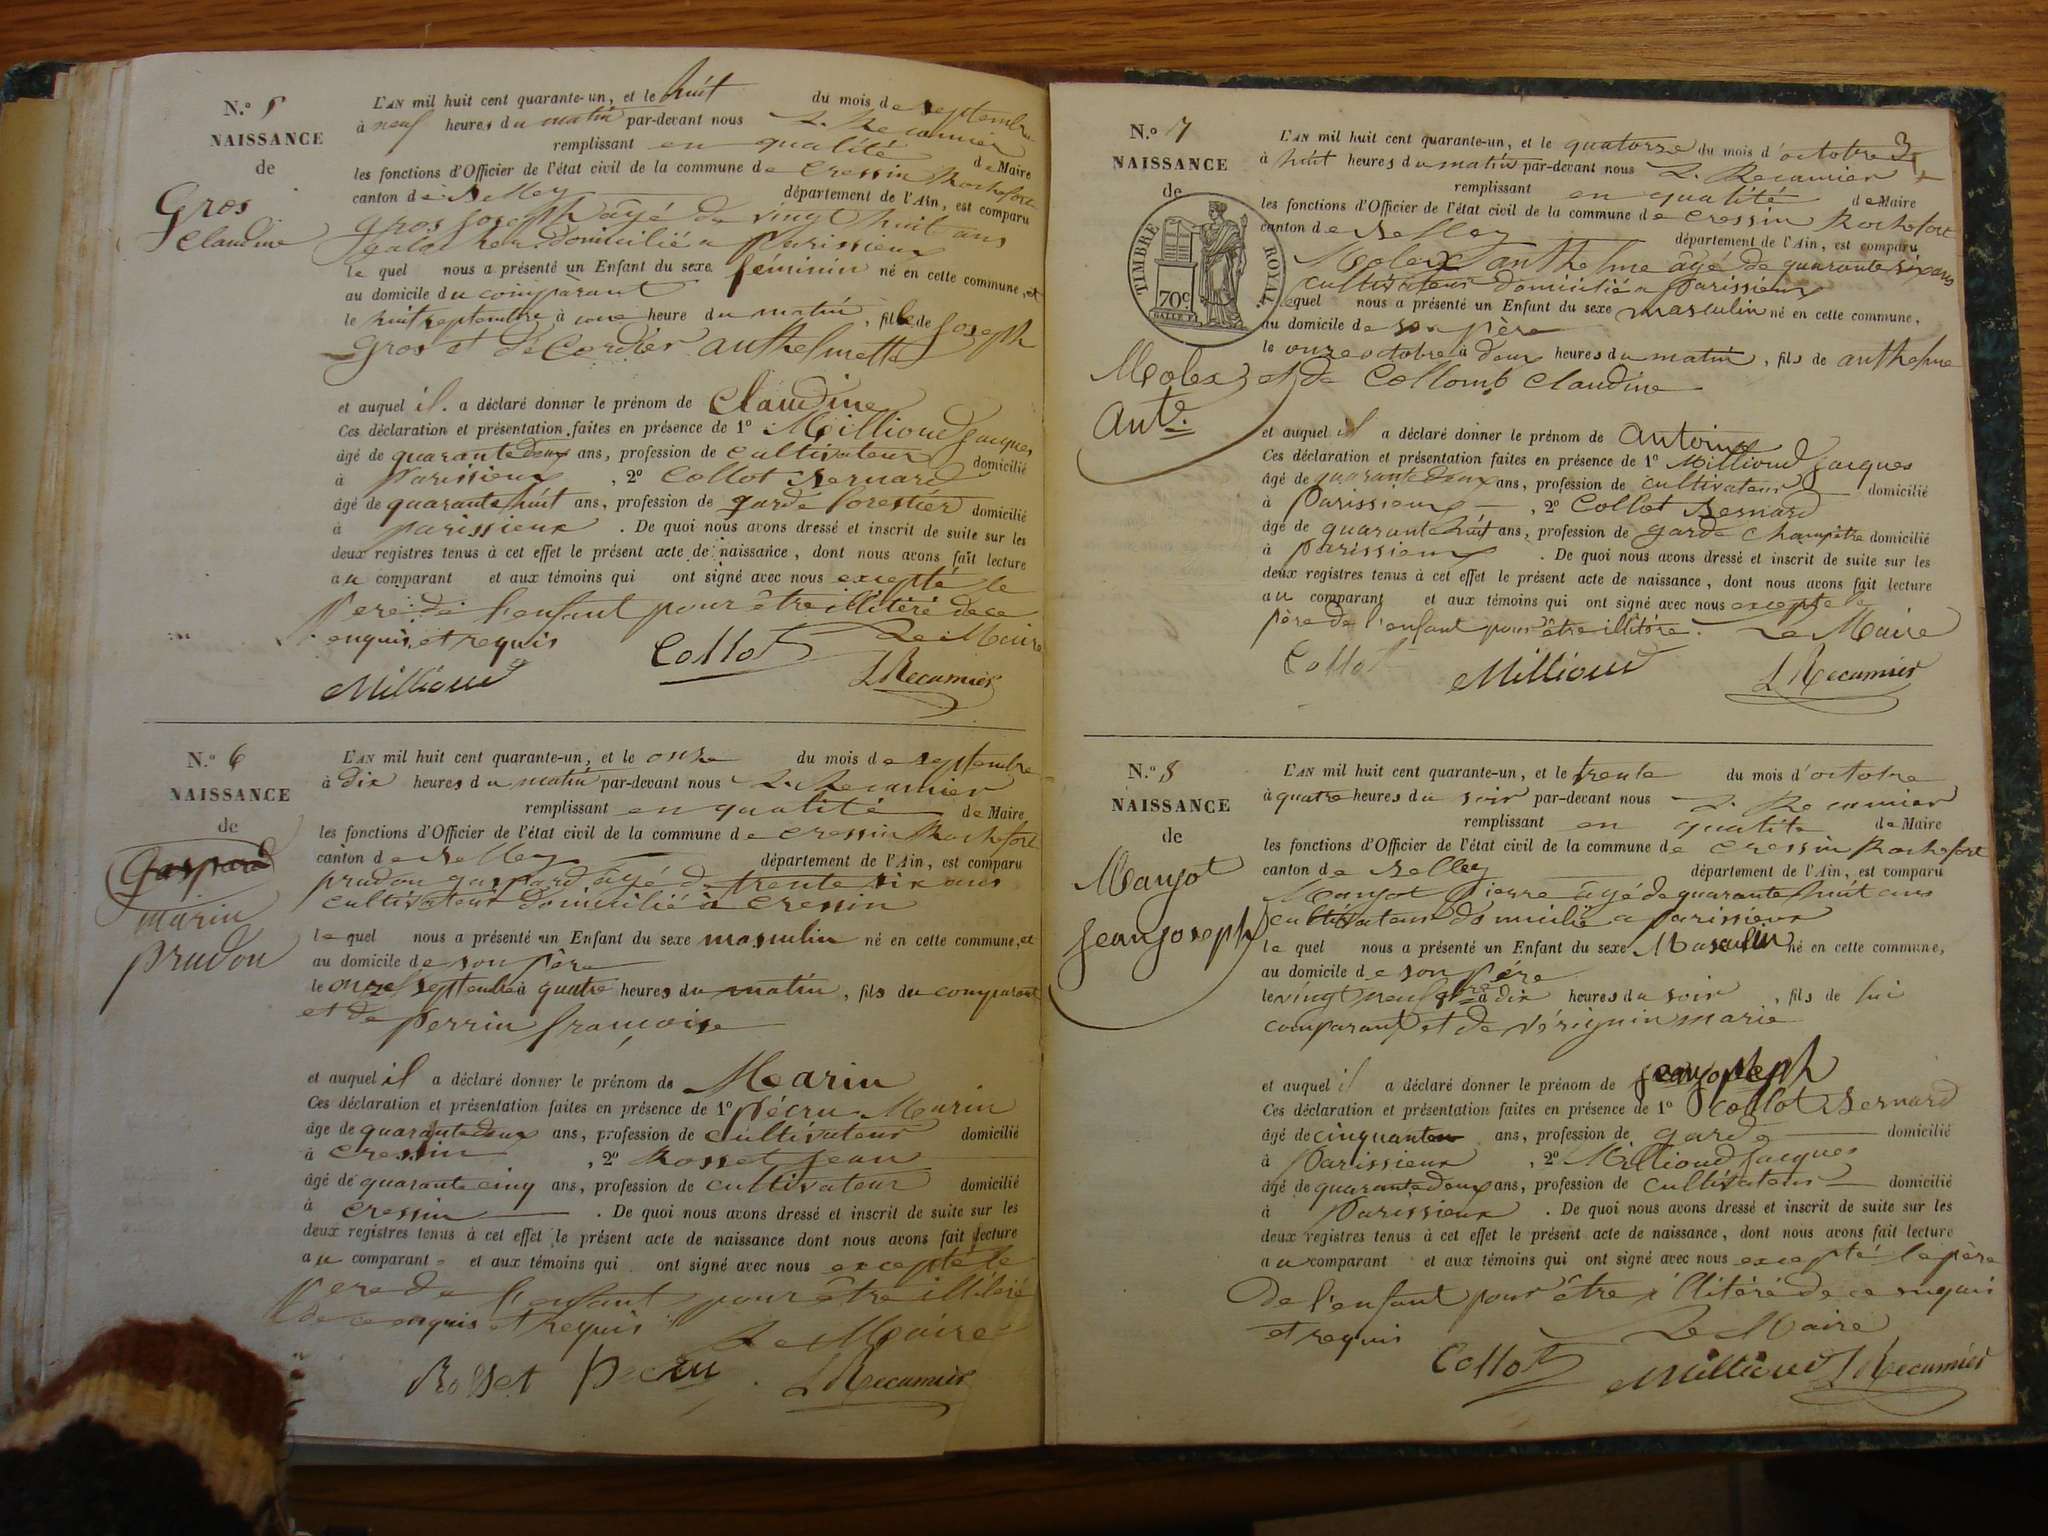 N.° 5
NAISSANCE
de
Gros
Claudine
L'AN mil huit cent quarante-un, et le huit du mois de septembre
à neuf heures du matin par-devant nous L. Recamier
remplissant en qualité de Maire
les fonctions d'Officier de l'état civil de la commune de Cressin Rochefort
canton de Belley département de l'Ain, est comparu
gros joseph âgé de vingt huit ans
domicilié a Parissieux
le quel nous a présenté un Enfant du sexe féminin né en cette commune, et
au domicile du comparant
le huit septembre à une heure du matin, fille de joseph
Gros et de Cordier anthelmette
et auquel il a déclaré donner le prénom de Claudine
Ces déclaration et présentation faites en présence de 1° Millioud jacques
âgé de quarante deux ans, profession de cultivateur domicilié
à Parissieux, 2° Collot Bernard
âgé de quarante huit ans, profession de garde forestier domicilié
à parissieux. De quoi nous avons dressé et inscrit de suite sur les
deux registres tenus à cet effet le présent acte de naissance, dont nous avons fait lecture
au comparant et aux témoins qui ont signé avec nous excepté le
pere de l'enfant pour être illitéré de ce
enquis et requis Le Maire
Millioud Collot LRecamier
N.° 6
NAISSANCE
de
Gaspard
marin
prudon
L'AN mil huit cent quarante-un, et le onze du mois de septembre
à dix heures du matin par-devant nous L. Recamier
remplissant en qualité de Maire
les fonctions d'Officier de l'état civil de la commune de Cressin Rochefort
canton de Belley département de l'Ain, est comparu
prudon gaspard âgé de trente six ans
cultivateur domicilié à Cressin
le quel nous a présenté un Enfant du sexe masculin né en cette commune, et
au domicile de son père
le onze septembre à quatre heures du matin, fils du comparant
et de perrin françoise
et auquel il a déclaré donner le prénom de Marin
Ces déclaration et présentation faites en présence de 1° Pécru Marin
âge de quarante deux ans, profession de cultivateur domicilié
à Cressin, 2° Rosset jean
âgé de quarante cinq ans, profession de cultivateur domicilié
à Cressin. De quoi nous avons dressé et inscrit de suite sur les
deux registres tenus à cet effet le présent acte de naissance dont nous avons fait lecture
au comparant et aux témoins qui ont signé avec nous excepté le
pere de l'enfant pour être illitéré
de ce enquis et requis Le Maire
Rosset Pecru LRecamier
3
N.° 7
NAISSANCE
de
TIMBRE ROYAL.
70c
Molex
Ant.e
L'AN mil huit cent quarante-un, et le quatorze du mois d'octobre
à huit heures du matin par-devant nous L. Recamier
remplissant en qualité de Maire
les fonctions d'Officier de l'état civil de la commune de Cressin Rochefort
canton de Belley département de l'Ain, est comparu
Molex anthelme âgé de quarante six ans
cultivateur domicilié a Parissieux
lequel nous a présenté un Enfant du sexe masculin né en cette commune,
au domicile de son père
le onze octobre à deux heures du matin, fils de anthelme
et de Collomb Claudine
et auquel il a déclaré donner le prénom de antoine
Ces déclaration et présentation faites en présence de 1° Millioud Jacques
âgé de quarante deux ans, profession de cultivateur domicilié
à Parissieux, 2° Collot Bernard
âgé de quarante huit ans, profession de garde champêtre domicilié
à parissieux. De quoi nous avons dressé et inscrit de suite sur les
deux registres tenus à cet effet le présent acte de naissance, dont nous avons fait lecture
au comparant et aux témoins qui ont signé avec nous excepté le
père de l'enfant pour être illitéré. Le Maire
Collot Millioud LRecamier
N.° 8
NAISSANCE
de
Manjot
jean joseph
L'AN mil huit cent quarante-un, et le trente du mois d'octobre
à quatre heures du soir par-devant nous L. Recamier
remplissant en qualité de Maire
les fonctions d'Officier de l'état civil de la commune de Cressin Rochefort
canton de Belley département de l'Ain, est comparu
Manjot Pierre âgé de quarante huit ans
cultivateur domicilié a parissieux
le quel nous a présenté un Enfant du sexe Masculin né en cette commune,
au domicile de son père
le vingt neuf à dix heures du soir, fils de lui
comparant et de Pérignin marie
et auquel il a déclaré donner le prénom de jean joseph
Ces déclaration et présentation faites en présence de 1° Collot Bernard
âgé de cinquante ans, profession de garde domicilié
à Parissieux, 2° Millioud Jacques
âgé de quarante deux ans, profession de cultivateur domicilié
à Parissieux. De quoi nous avons dressé et inscrit de suite sur les
deux registres tenus à cet effet le présent acte de naissance, dont nous avons fait lecture
au comparant et aux témoins qui ont signé avec nous excepté le père
de l'enfant pour être illitéré de ce enquis
et requis Le Maire
Collot Millioud LRecamier